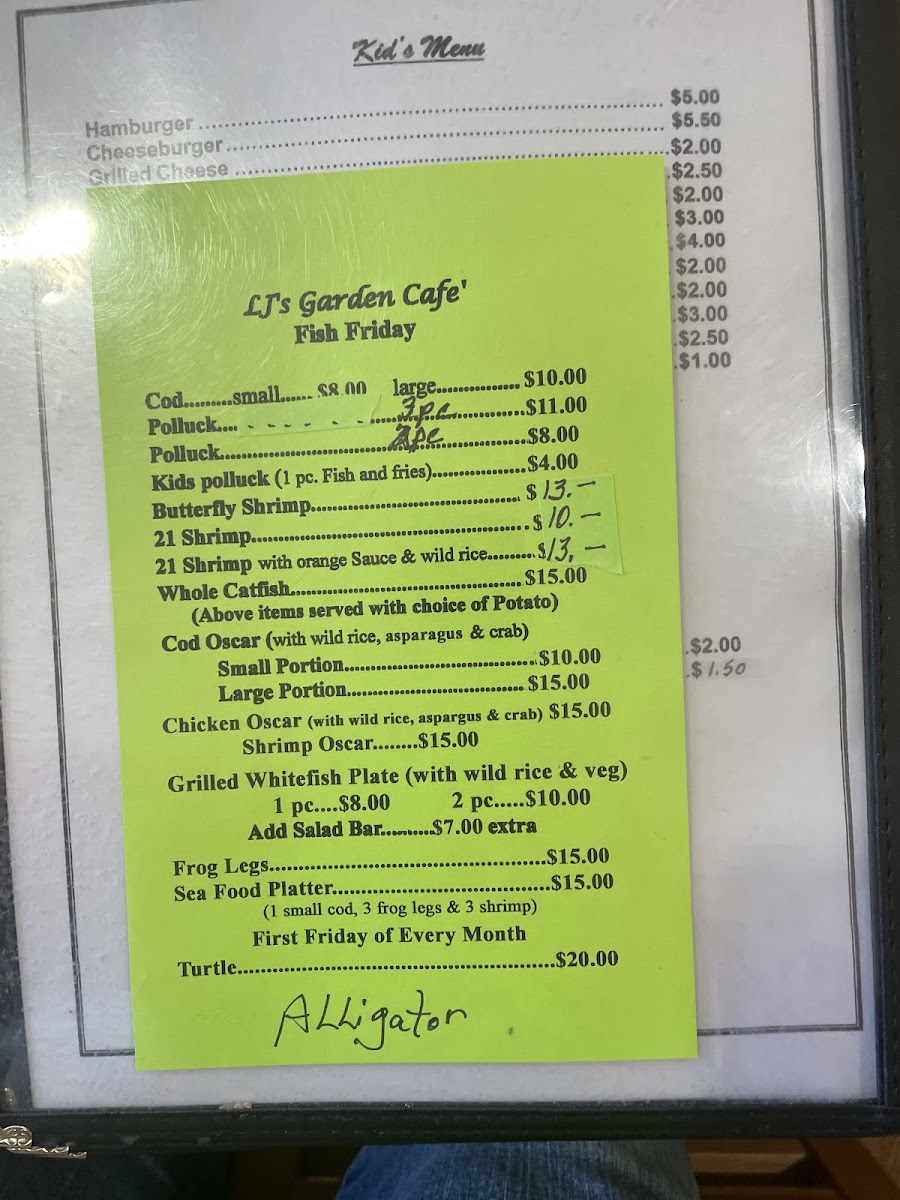 Kid's Menu
Hamburger .......... $5.00
Cheeseburger .......... $5.50
Grilled Cheese .......... $2.00
$2.50
$2.00
$3.00
$4.00
$2.00
$2.00
$3.00
$2.50
$1.00
LJ's Garden Cafe'
Fish Friday
Cod.........small...... $8.00 large............... $10.00
Polluck.... - - - - - - ......3pc.............$11.00
Polluck..........2pc..........$8.00
Kids polluck (1 pc. Fish and fries)..........$4.00
Butterfly Shrimp.......... $ 13.-
21 Shrimp.......... $ 10.-
21 Shrimp with orange Sauce & wild rice.........$13,-
Whole Catfish.......... $15.00
(Above items served with choice of Potato)
Cod Oscar (with wild rice, asparagus & crab)
Small Portion..........$10.00
Large Portion.......... $15.00
Chicken Oscar (with wild rice, aspargus & crab) $15.00
Shrimp Oscar........$15.00
Grilled Whitefish Plate (with wild rice & veg)
1 pc....$8.00 2 pc.....$10.00
Add Salad Bar..........$7.00 extra
Frog Legs..........$15.00
Sea Food Platter..........$15.00
(1 small cod, 3 frog legs & 3 shrimp)
First Friday of Every Month
Turtle..........$20.00
ALLigator
$2.00
$1.50